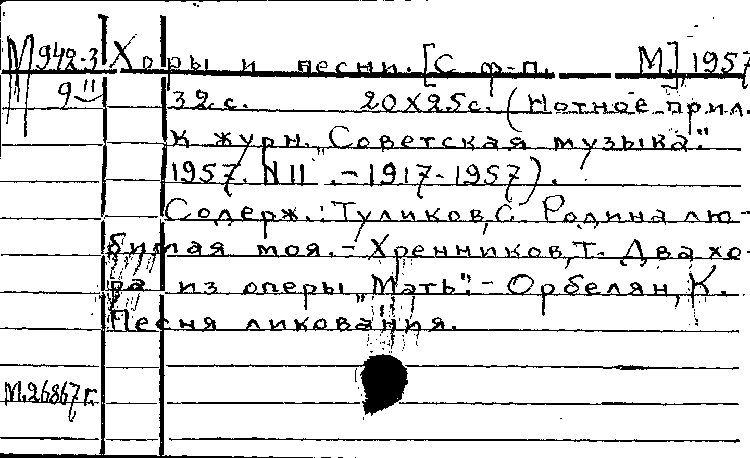 М 942-3 Хоры и песни. [С ф-п. М.], 1957
9 II 32 с. 20х25с. (Нотное прил.
к журн. „Советская музыка".
1957. N 11 . – 1917-1957).
Содерж.: Туликов, С. Родина лю-
бимая моя. – Хренников, Т. Два хо-
ра из оперы „Мать". – Орбелян, К.
Песня ликования.
М.26867 г.